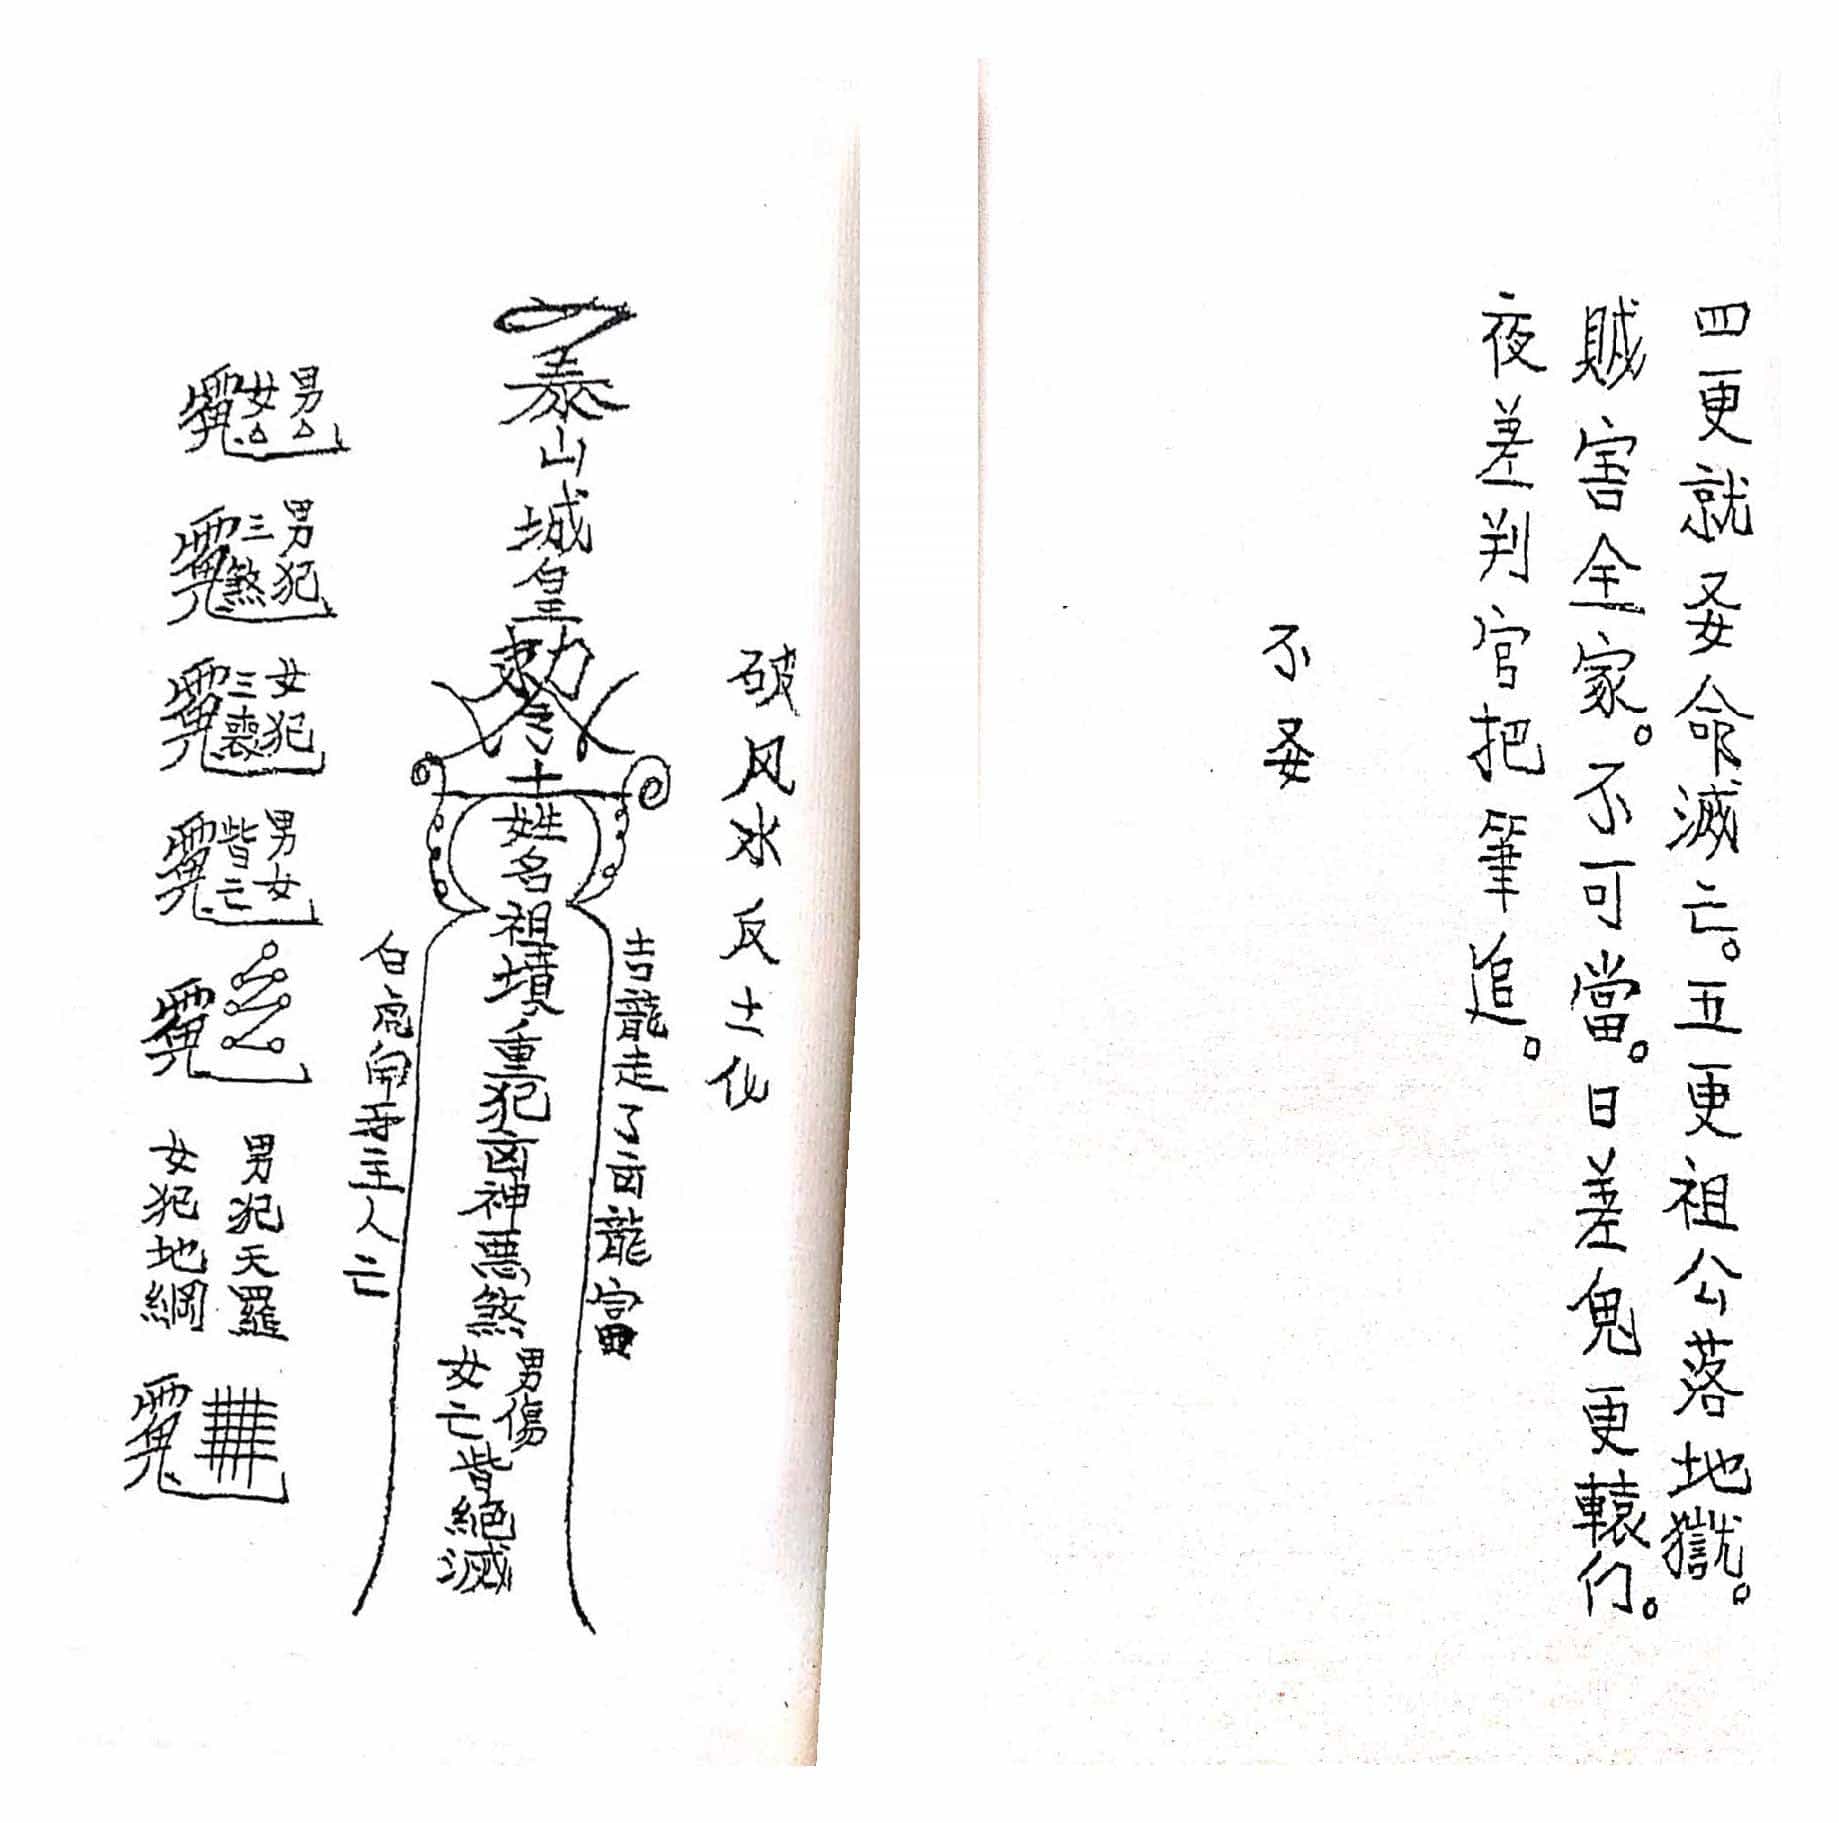 四更就妛命滅亡。五更祖公落地獄。
賊害全家。不可當。日差鬼更轅们。
夜差判官把筆追。
不妛
破风水反土化
吉龍走了凶龍富
泰山城皇勅令
土
姓名祖墳重犯凶神惡煞
男傷
女亡皆絕滅
白虎開
主人亡
男
女
男犯
三煞
女犯
三喪
男女
皆亡
男犯天羅
女犯地綱